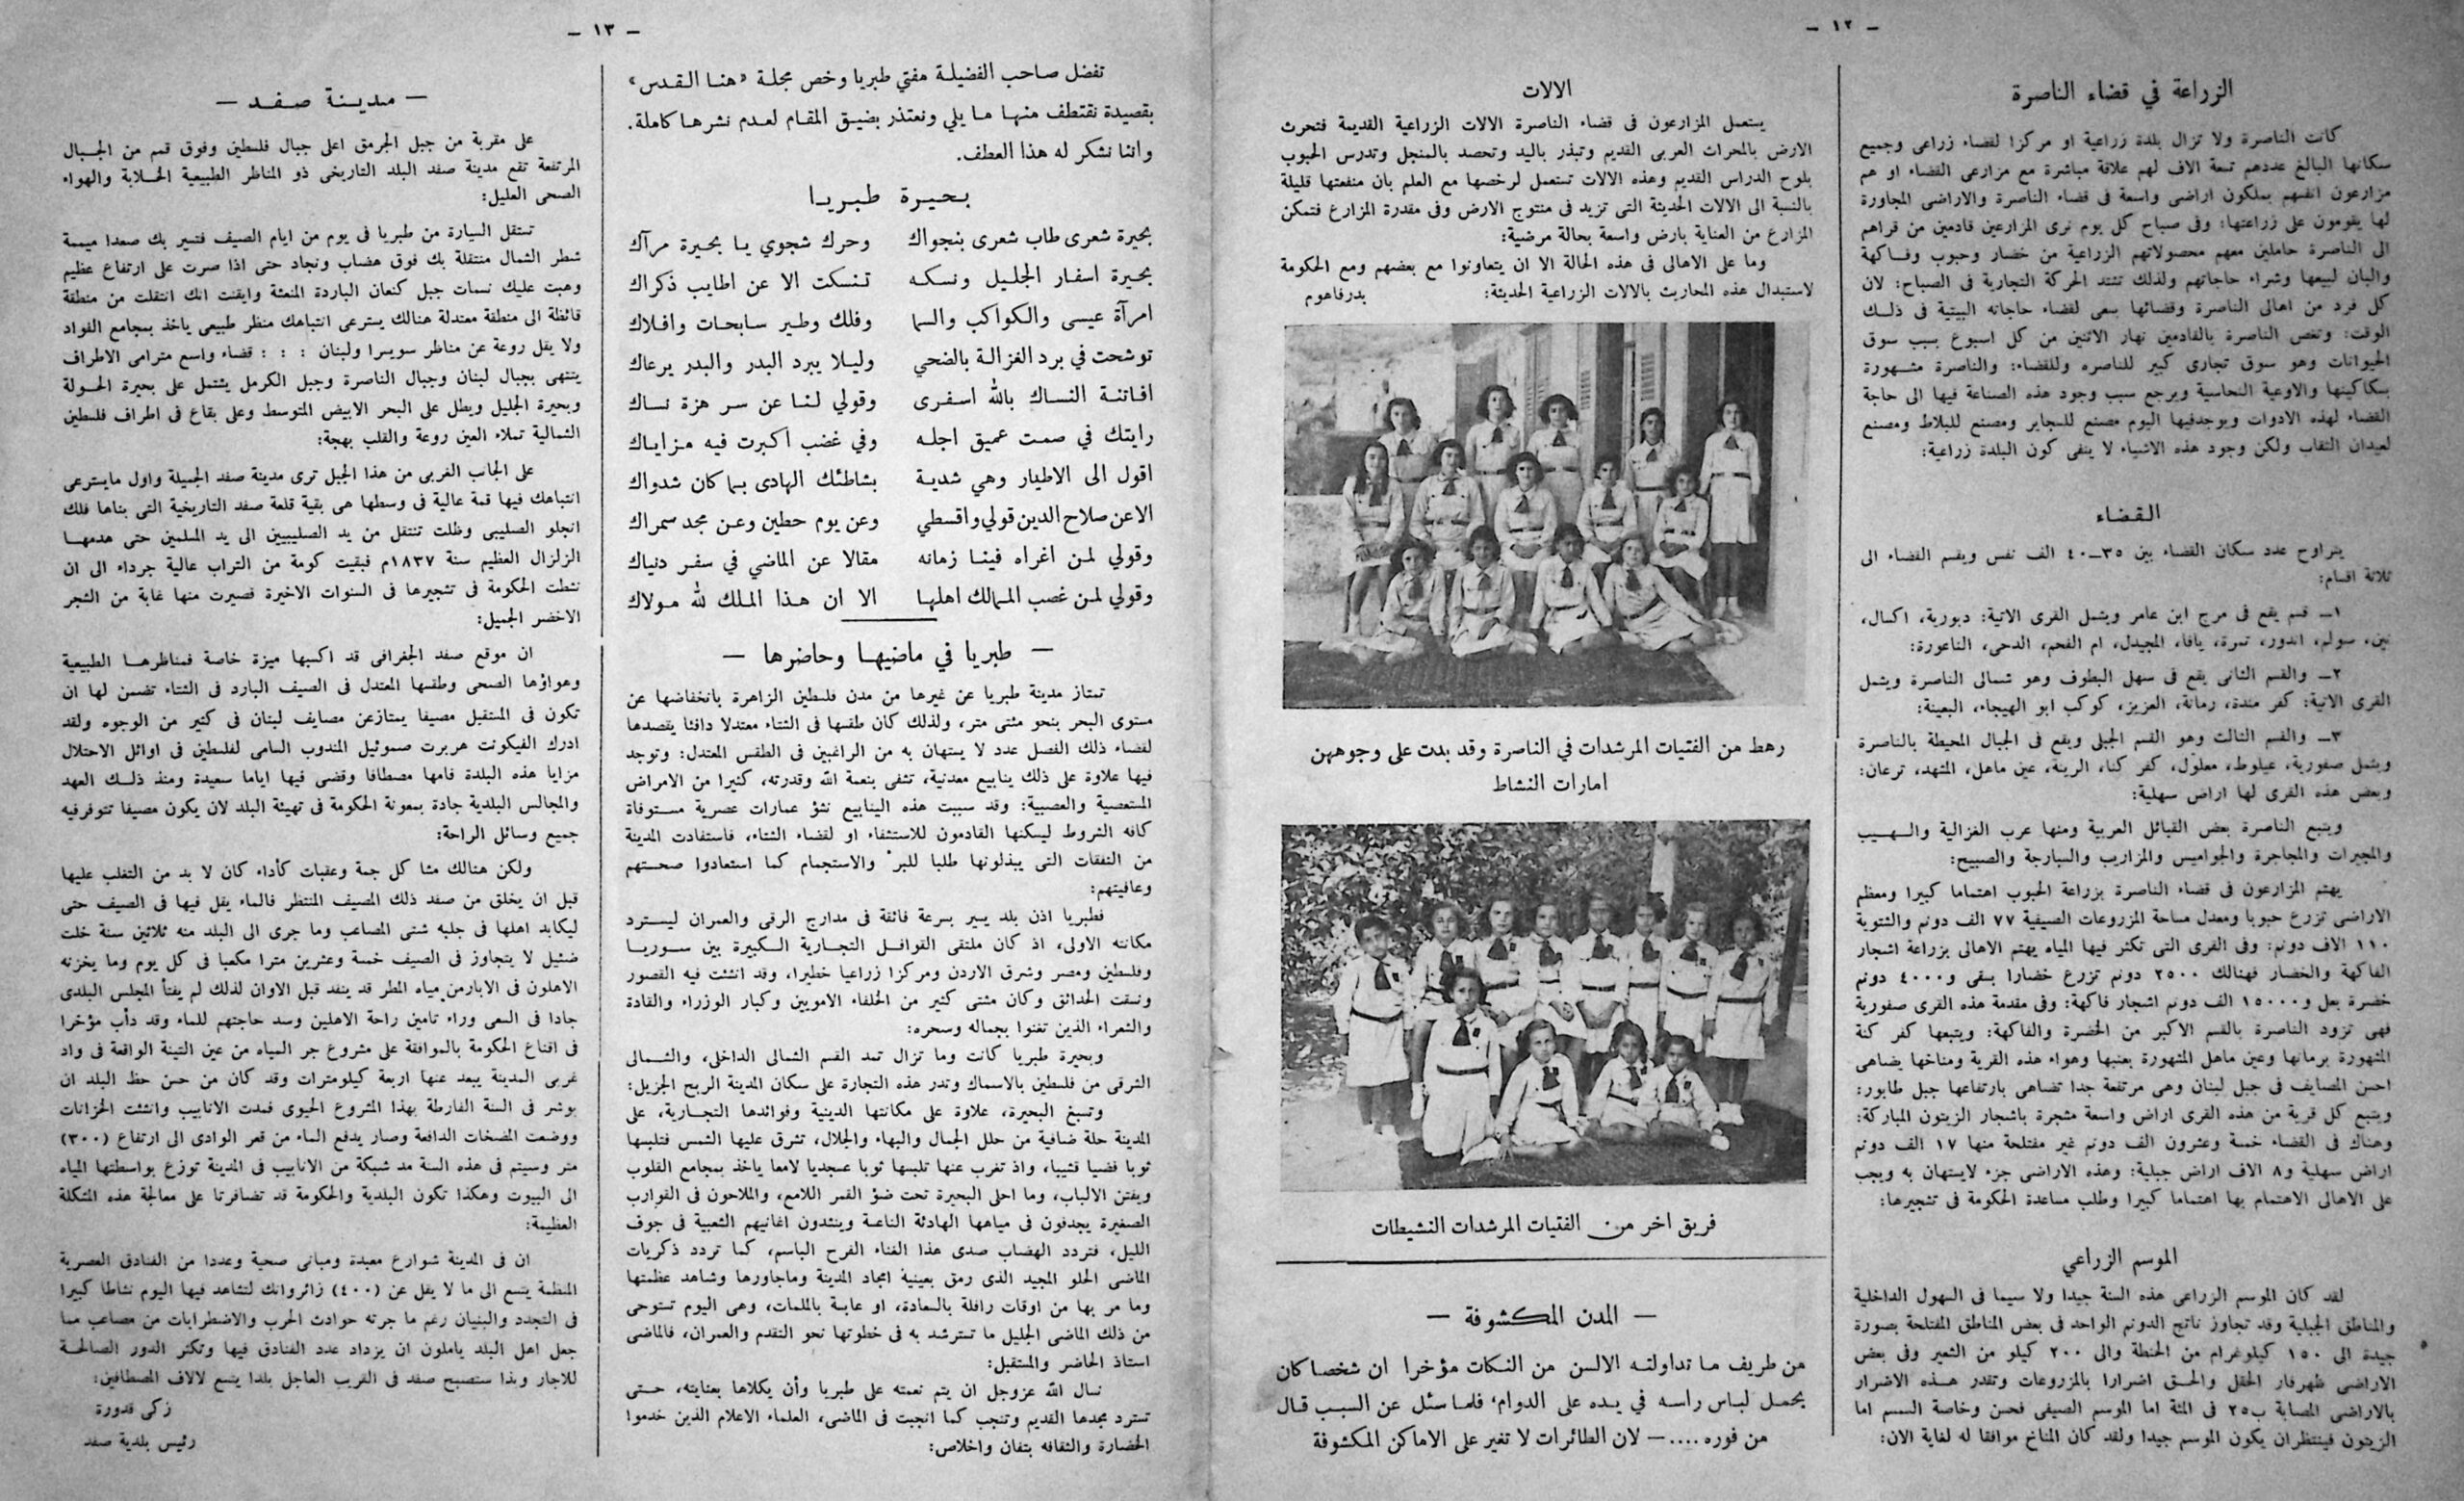 - ١٢ -
الزراعة في قضاء الناصرة
كانت الناصرة ولا تزال بلدة زراعية او مركزا لقضاء زراعى وجميع
سكانها البالغ عددهم تسعة الاف لهم علاقة مباشرة مع مزارعى القضاء او هم
مزارعون انفسهم يملكون اراضى واسعة فى قضاء الناصرة والاراضى المجاورة
لها يقومون على زراعتها: وفى صباح كل يوم نرى المزارعين قادمين من قراهم
الى الناصرة حاملين معهم محصولاتهم الزراعية من خضار وحبوب وفاكهة
والبان لبيعها وشراء حاجاتهم ولذلك تشتد الحركة التجارية فى الصباح: لان
كل فرد من اهالى الناصرة وقضائها يسعى لقضاء حاجاته البيتية فى ذلك
الوقت: وتغص الناصرة بالقادمين نهار الاثنين من كل اسبوع بسبب سوق
الحيوانات وهو سوق تجارى كبير للناصره وللقضاء: والناصرة مشهورة
بسكاكينها والاوعية النحاسية ويرجع سبب وجود هذه الصناعة فيها الى حاجة
القضاء لهذه الادوات ويوجدفيها اليوم مصنع للسجاير ومصنع للبلاط ومصنع
لعيدان الثقاب ولكن وجود هذه الاشياء لا ينفى كون البلدة زراعية:
القضاء
يتراوح عدد سكان القضاء بين ٣٥-٤٠ الف نفس ويقسم القضاء الى
ثلاثة اقسام:
١- قسم يقع فى مرج ابن عامر ويشمل القرى الاتية: دبورية، اكسال،
نين، سولم، اندور، تمرة، يافا، المجيدل، ام الفحم، الدحى، الناعورة:
٢- والقسم الثانى يقع فى سهل البطوف وهو شمالى الناصرة ويشمل
القرى الاتية: كفر مندة، رمانة، العزيز، كوكب ابو الهيجاء، البعينة:
٣- والقسم الثالث وهو القسم الجبلى ويقع فى الجبال المحيطة بالناصرة
ويشمل صفورية، عيلوط، معلول، كفر كنا، الرينة، عين ماهل، المشهد، ترعان:
وبعض هذه القرى لها اراض سهلية:
ويتبع الناصرة بعض القبائل العربية ومنها عرب الغزالية والهيب
والمجيرات والمجاجرة والجواميس والمزاريب والسبارجة والصبيح:
يهتم المزارعون فى قضاء الناصرة بزراعة الحبوب اهتماما كبيرا ومعظم
الاراضى تزرع حبوبا ومعدل مساحة المزروعات الصيفية ٧٧ الف دونم والشتوية
١١٠ الاف دونم: وفى القرى التى تكثر فيها المياه يهتم الاهالى بزراعة اشجار
الفاكهة والخضار فهنالك ٢٥٠٠ دونم تزرع خضارا بسقى و٤٠٠٠ دونم
خضرة بعل و١٥٠٠٠ الف دونم اشجار فاكهة: وفى مقدمة هذه القرى صفورية
فهى تزود الناصرة بالقسم الاكبر من الخضرة والفاكهة: ويتبعها كفر كنة
المشهورة برمانها وعين ماهل المشهورة بعنبها وهواء هذه القرية ومناخها يضاهى
احسن المصايف فى جبل لبنان وهى مرتفعة جدا تضاهى بارتفاعها جبل طابور:
ويتبع كل قرية من هذه القرى اراض واسعة مشجرة باشجار الزيتون المباركة:
وهناك فى القضاء خمسة وعشرون الف دونم غير مفتلحة منها ١٧ الف دونم
اراض سهلية و٨ الاف اراض جبلية: وهذه الاراضى جزء لايستهان به ويجب
على الاهالى الاهتمام بها اهتماما كبيرا وطلب مساعدة الحكومة فى تشجيرها:
الموسم الزراعي
لقد كان الموسم الزراعى هذه السنة جيدا ولا سيما فى السهول الداخلية
والمناطق الجبلية وقد تجاوز ناتج الدونم الواحد فى بعض المناطق المفتلحة بصورة
جيدة الى ١٥٠ كيلوغرام من الحنطة والى ٢٠٠ كيلو من الشعير وفى بعض
الاراضى ظهرفار الحقل والحق اضرارا بالمزروعات وتقدر هذه الاضرار
بالاراضى المصابة ب٢٥ فى المئة اما الموسم الصيفى فحسن وخاصة السمسم اما
الزيتون فينتظران يكون الموسم جيدا ولقد كان المناخ موافقا له لغاية الان:
الالات
يستعمل المزارعون فى قضاء الناصرة الالات الزراعية القديمة فتحرث
الارض بالمحراث العربى القديم وتبذر باليد وتحصد بالمنجل وتدرس الحبوب
بلوح الدراس القديم وهذه الالات تستعمل لرخصها مع العلم بان منفعتها قليلة
بالنسبة الى الالات الحديثة التى تزيد فى منتوج الارض وفى مقدرة المزارع فتمكن
المزارع من العناية بارض واسعة بحالة مرضية:
وما على الاهالى فى هذه الحالة الا ان يتعاونوا مع بعضهم ومع الحكومة
لاستبدال هذه المحاريث بالالات الزراعية الحديثة: بدرفاهوم
رهط من الفتيات المرشدات في الناصرة وقد بدت على وجوههن
امارات النشاط
فريق اخر من الفتيات المرشدات النشيطات
— المدن المكشوفة —
من طريف ما تداولته الالسن من النكات مؤخرا ان شخصا كان
يحمل لباس راسه في يده على الدوام، فلما سئل عن السبب قال
من فوره ....— لان الطائرات لا تغير على الاماكن المكشوفة
- ١٣ -
تفضل صاحب الفضيلة مفتي طبريا وخص مجلة «هنا القدس»
بقصيدة نقتطف منها ما يلي ونعتذر بضيق المقام لعدم نشرها كاملة.
واننا نشكر له هذا العطف.
بحيرة طبريا
بحيرة شعرى طاب شعرى بنجواك وحرك شجوي يا بحيرة مرآك
بحيرة اسفار الجليل ونسكه تنسكت الا عن اطايب ذكراك
امرآة عيسى والكواكب والسما وفلك وطير سابحات وافلاك
توشحت في برد الغزالة بالضحي وليلا ببرد البدر والبدر يرعاك
افاتنة النساك بالله اسفرى وقولي لنا عن سر هزة نساك
رايتك في صمت عميق اجله وفي غضب اكبرت فيه مزاياك
اقول الى الاطيار وهي شدية بشاطئك الهادى بما كان شدواك
الاعن صلاح الدين قولي واقسطي وعن يوم حطين وعن مجد سمراك
وقولي لمن اغراه فينا زمانه مقالا عن الماضي في سفر دنياك
وقولي لمن غصب الممالك اهلها الا ان هذا الملك لله مولاك
— طبريا في ماضيها وحاضرها —
تمتاز مدينة طبريا عن غيرها من مدن فلسطين الزاهرة بانخفاضها عن
مستوى البحر بنحو مئتى متر، ولذلك كان طقسها فى الشتاء معتدلا دافئا يقصدها
لقضاء ذلك الفصل عدد لا يستهان به من الراغبين فى الطقس المعتدل: وتوجد
فيها علاوة على ذلك ينابيع معدنية، تشفى بنعمة الله وقدرته، كثيرا من الامراض
المستعصية والعصبية: وقد سببت هذه الينابيع نشؤ عمارات عصرية مستوفاة
كافه الشروط ليسكنها القادمون للاستشفاء او لقضاء الشتاء، فاستفادت المدينة
من النفقات التى يبذلونها طلبا للبر والاستجمام كما استعادوا صحتهم
وعافيتهم:
فطبريا اذن بلد يسير بسرعة فائقة فى مدارج الرقى والعمران ليسترد
مكانته الاولى، اذ كان ملتقى القوافل التجارية الكبيرة بين سوريا
وفلسطين ومصر وشرق الاردن ومركزا زراعيا خطيرا، وقد انشئت فيه القصور
ونسقت الحدائق وكان مشتى كثير من الخلفاء الامويين وكبار الوزراء والقادة
والشعراء الذين تغنوا بجماله وسحره:
وبحيرة طبريا كانت وما تزال تمد القسم الشمالى الداخلى، والشمالى
الشرقى من فلسطين بالاسماك وتدر هذه التجارة على سكان المدينة الربح الجزيل:
وتسبغ البحيرة، علاوة على مكانتها الدينية وفوائدها التجارية، على
المدينة حلة ضافية من حلل الجمال والبهاء والجلال، تشرق عليها الشمس فتلبسها
ثوبا فضيا قشيبا، واذ تغرب عنها تلبسها ثوبا عسجديا لامعا ياخذ بمجامع القلوب
ويفتن الالباب، وما احلى البحيرة تحت ضؤ القمر اللامع، والملاحون فى القوارب
الصغيرة يجدفون فى مياهها الهادئة الناعسة وينشدون اغانيهم الشعبية فى جوف
الليل، فتردد الهضاب صدى هذا الغناء الفرح الباسم، كما تردد ذكريات
الماضى الحلو المجيد الذى رمق بعينية امجاد المدينة وماجاورها وشاهد عظمتها
وما مر بها من اوقات رافلة بالسعادة، او عابسة بالملمات، وهى اليوم تستوحى
من ذلك الماضى الجليل ما تسترشد به فى خطوتها نحو التقدم والعمران، فالماضى
استاذ الحاضر والمستقبل:
نسال الله عزوجل ان يتم نعمته على طبريا وأن يكلاها بعنايته، حتى
تسترد مجدها القديم وتنجب كما انجبت فى الماضى، العلماء الاعلام الذين خدموا
الحضارة والثقافه بتفان واخلاص:
— مدينة صفد —
على مقربة من جبل الجرمق اعلى جبال فلسطين وفوق قمم من الجبال
المرتفعة تقع مدينة صفد البلد التاريخى ذو المناظر الطبيعية الخلابة والهواء
الصحى العليل:
تستقل السيارة من طبريا فى يوم من ايام الصيف فتسير بك صعدا ميممة
شطر الشمال منتقلة بك فوق هضاب ونجاد حتى اذا صرت على ارتفاع عظيم
وهبت عليك نسمات جبل كنعان الباردة المنعشة وايقنت انك انتقلت من منطقة
قائظة الى منطقة معتدلة هنالك يسترعى انتباهك منظر طبيعى ياخذ بمجامع الفواد
ولا يقل روعة عن مناظر سويسرا ولبنان : : : قضاء واسع مترامى الاطراف
ينتهى بجبال لبنان وجبال الناصرة وجبل الكرمل يشتمل على بحيرة الحولة
وبحيرة الجليل ويطل على البحر الابيض المتوسط وعلى بقاع فى اطراف فلسطين
الشمالية تملاء العين روعة والقلب بهجة:
على الجانب الغربى من هذا الجبل ترى مدينة صفد الجميلة واول مايسترعى
انتباهك فيها قمة عالية فى وسطها هى بقية قلعة صفد التاريخية التى بناها فلك
انجلو الصليبى وظلت تنتقل من يد الصليبيين الى يد المسلمين حتى هدمها
الزلزال العظيم سنة ١٨٣٧م فبقيت كومة من التراب عالية جرداء الى ان
نشطت الحكومة فى تشجيرها فى السنوات الاخيرة فصيرت منها غابة من الشجر
الاخضر الجميل:
ان موقع صفد الجغرافى قد اكسبها ميزة خاصة فمناظرها الطبيعية
وهواؤها الصحى وطقسها المعتدل فى الصيف البارد فى الشتاء تضمن لها ان
تكون فى المستقبل مصيفا يمتازعن مصايف لبنان فى كثير من الوجوه ولقد
ادرك الفيكونت هربرت صموئيل المندوب السامى لفلسطين فى اوائل الاحتلال
مزايا هذه البلدة فامها مصطافا وقضى فيها اياما سعيدة ومنذ ذلك العهد
والمجالس البلدية جادة بمعونة الحكومة فى تهيئة البلد لان يكون مصيفا تتوفرفيه
جميع وسائل الراحة:
ولكن هنالك مشاكل جمة وعقبات كأداء كان لا بد من التغلب عليها
قبل ان يخلق من صفد ذلك المصيف المنتظر فالماء يقل فيها فى الصيف حتى
ليكابد اهلها فى جلبه شتى المصاعب وما جرى الى البلد منه ثلاثين سنة خلت
ضئيل لا يتجاوز فى الصيف خمسة وعشرين مترا مكعبا فى كل يوم وما يخزنه
الاهلون فى الابارمن مياه المطر قد ينفد قبل الاوان لذلك لم يفتأ المجلس البلدى
جادا فى السعى وراء تامين راحة الاهلين وسد حاجتهم للماء وقد دأب مؤخرا
فى اقناع الحكومة بالموافقة على مشروع جر المياه من عين التينة الواقعة فى واد
غربى المدينة يبعد عنها اربعة كيلومترات وقد كان من حسن حظ البلد ان
بوشر فى السنة الفارطة بهذا المشروع الحيوى فمدت الانابيب وانشئت الخزانات
ووضعت المضخات الدافعة وصار يدفع الماء من قعر الوادى الى ارتفاع (٣٠٠)
متر وسيتم فى هذه السنة مد شبكة من الانابيب فى المدينة توزع بواسطتها المياه
الى البيوت وهكذا تكون البلدية والحكومة قد تضافرتا على معالجة هذه المشكلة
العظيمة:
ان فى المدينة شوارع معبدة ومبانى صحية وعددا من الفنادق العصرية
المنظمة يتسع الى ما لا يقل عن (٤٠٠) زائروانك لتشاهد فيها اليوم نشاطا كبيرا
فى التجدد والبنيان رغم ما جرته حوادث الحرب والاضطرابات من مصاعب مما
جعل اهل البلد ياملون ان يزداد عدد الفنادق فيها وتكثر الدور الصالحة
للاجار وبذا ستصبح صفد فى القريب العاجل بلدا يتسع لالاف المصطافين:
زكى قدورة
رئيس بلدية صفد